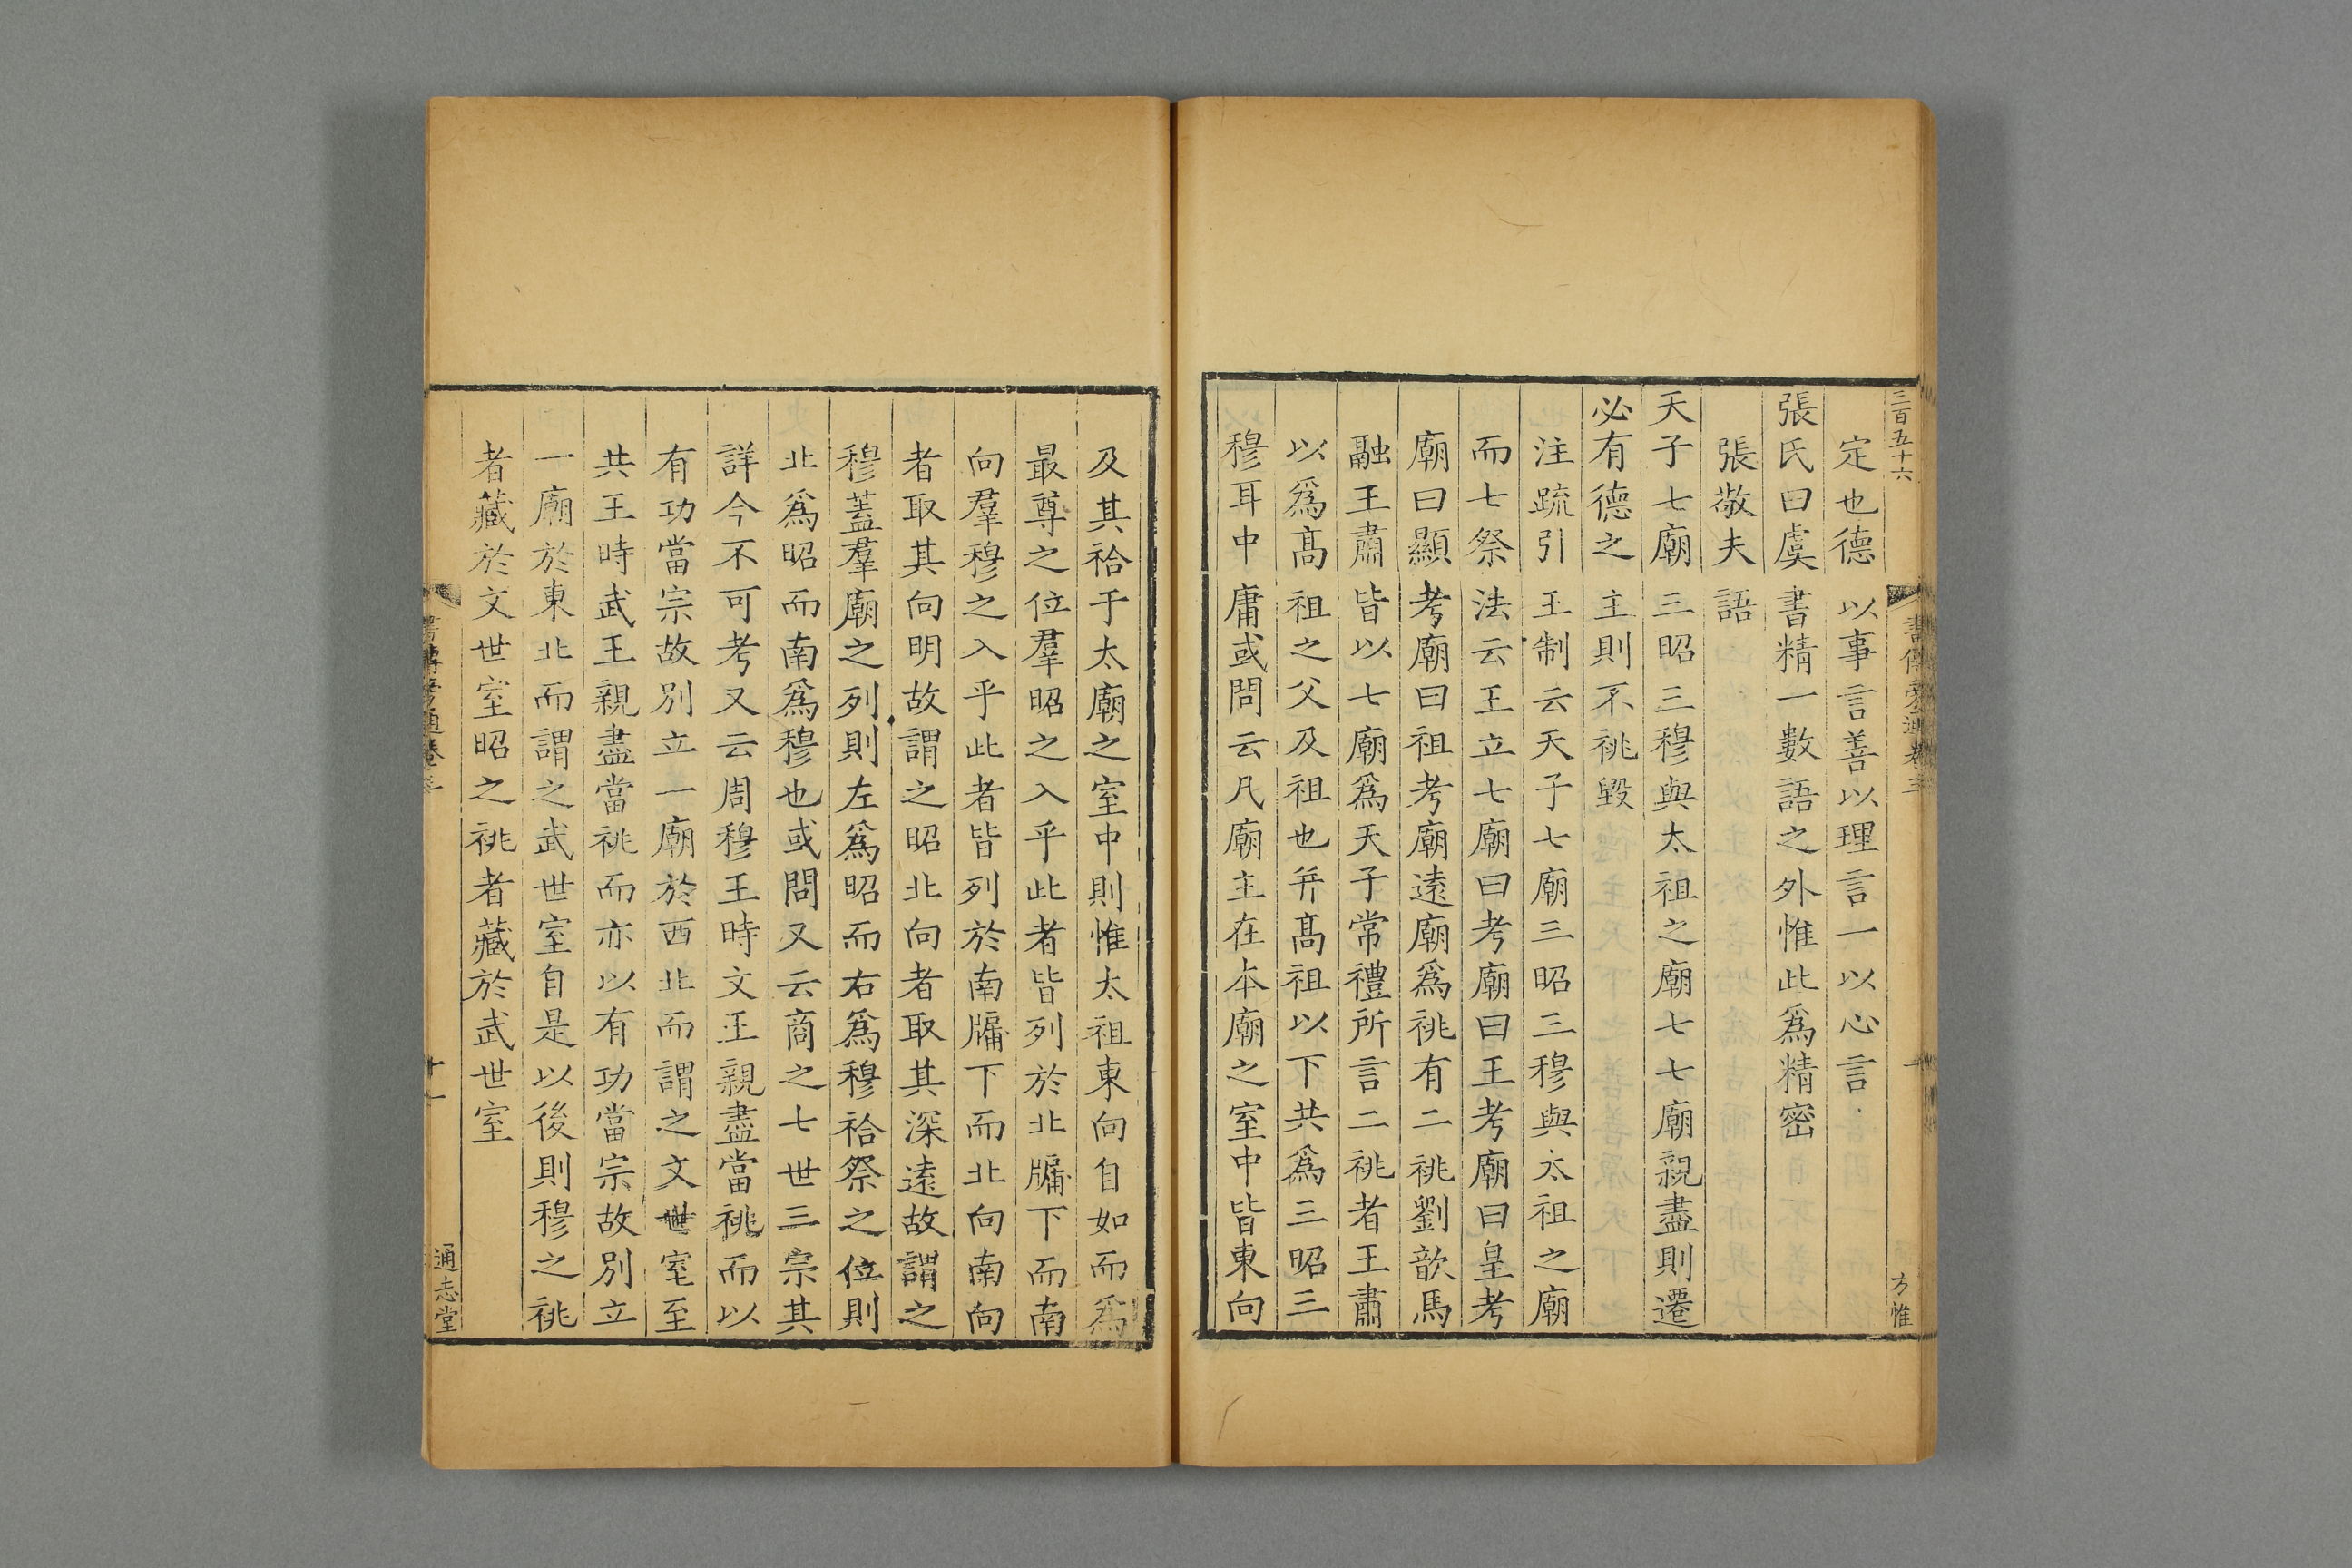 三百五十六
書傳旁通卷三
方惟
定也德以事言善以理言一以心言
張氏曰虞書精一數語之外惟此爲精密
張敬夫語
天子七廟三昭三穆與太祖之廟七七廟親盡則遷
必有德之主則不祧毀
注䟽引王制云天子七廟三昭三穆與太祖之廟
而七祭法云王立七廟曰考廟曰王考廟曰皇考
廟曰顯考廟曰祖考廟遠廟爲祧有二祧劉歆馬
融王肅皆以七廟爲天子常禮所言二祧者王肅
以爲髙祖之父及祖也并髙祖以下共爲三昭三
穆耳中庸或問云凡廟主在本廟之室中皆東向
及其祫于太廟之室中則惟太祖東向自如而爲
最尊之位羣昭之入乎此者皆列於北牖下而南
向羣穆之入乎此者皆列於南牖下而北向南向
者取其向明故謂之昭北向者取其深遠故謂之
穆蓋羣廟之列則左爲昭而右爲穆祫祭之位則
北爲昭而南爲穆也或問又云商之七世三宗其
詳今不可考又云周穆王時文王親盡當祧而以
有功當宗故別立一廟於西北而謂之文世室至
共王時武王親盡當祧而亦以有功當宗故別立
一廟於東北而謂之武世室自是以後則穆之祧
者藏於文世室昭之祧者藏於武世室
書傳旁通卷三
十一
通志堂